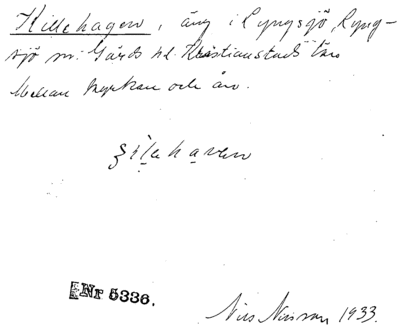 Killehagen, äng i Lyngsjö, Lyng-
sjö sn. Gärds hd. Kristianstads län
Mellan kyrkan och ån.
Nr 5336.
Nils Nilsson 1933.